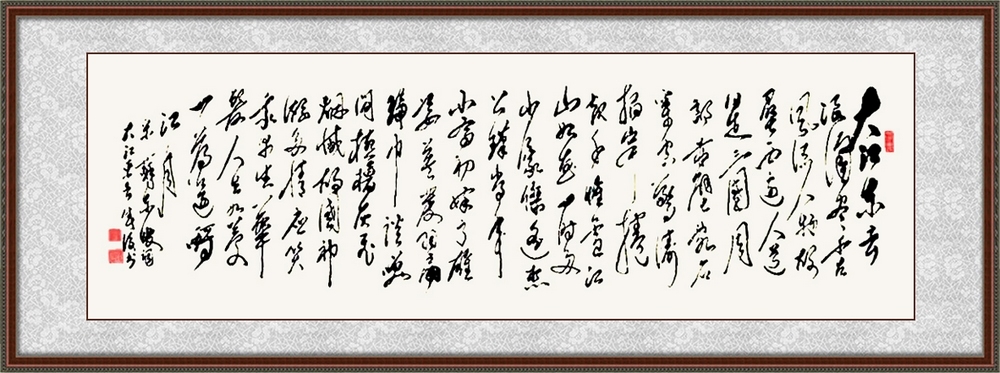 大江东去
浪淘尽千古
风流人物故
垒西边人道
是三國周
郎赤壁乱石
穿空驚涛
拍岸捲
起千堆雪江
山如画一时多
少豪傑遥想
公瑾当年
小乔初嫁了雄
姿英發羽扇
纶巾谈笑
间樯橹灰飞
烟滅故國神
游多情应笑
我早生華
髮人生如夢
一尊还酹
江月
宋苏东坡词
大江东去